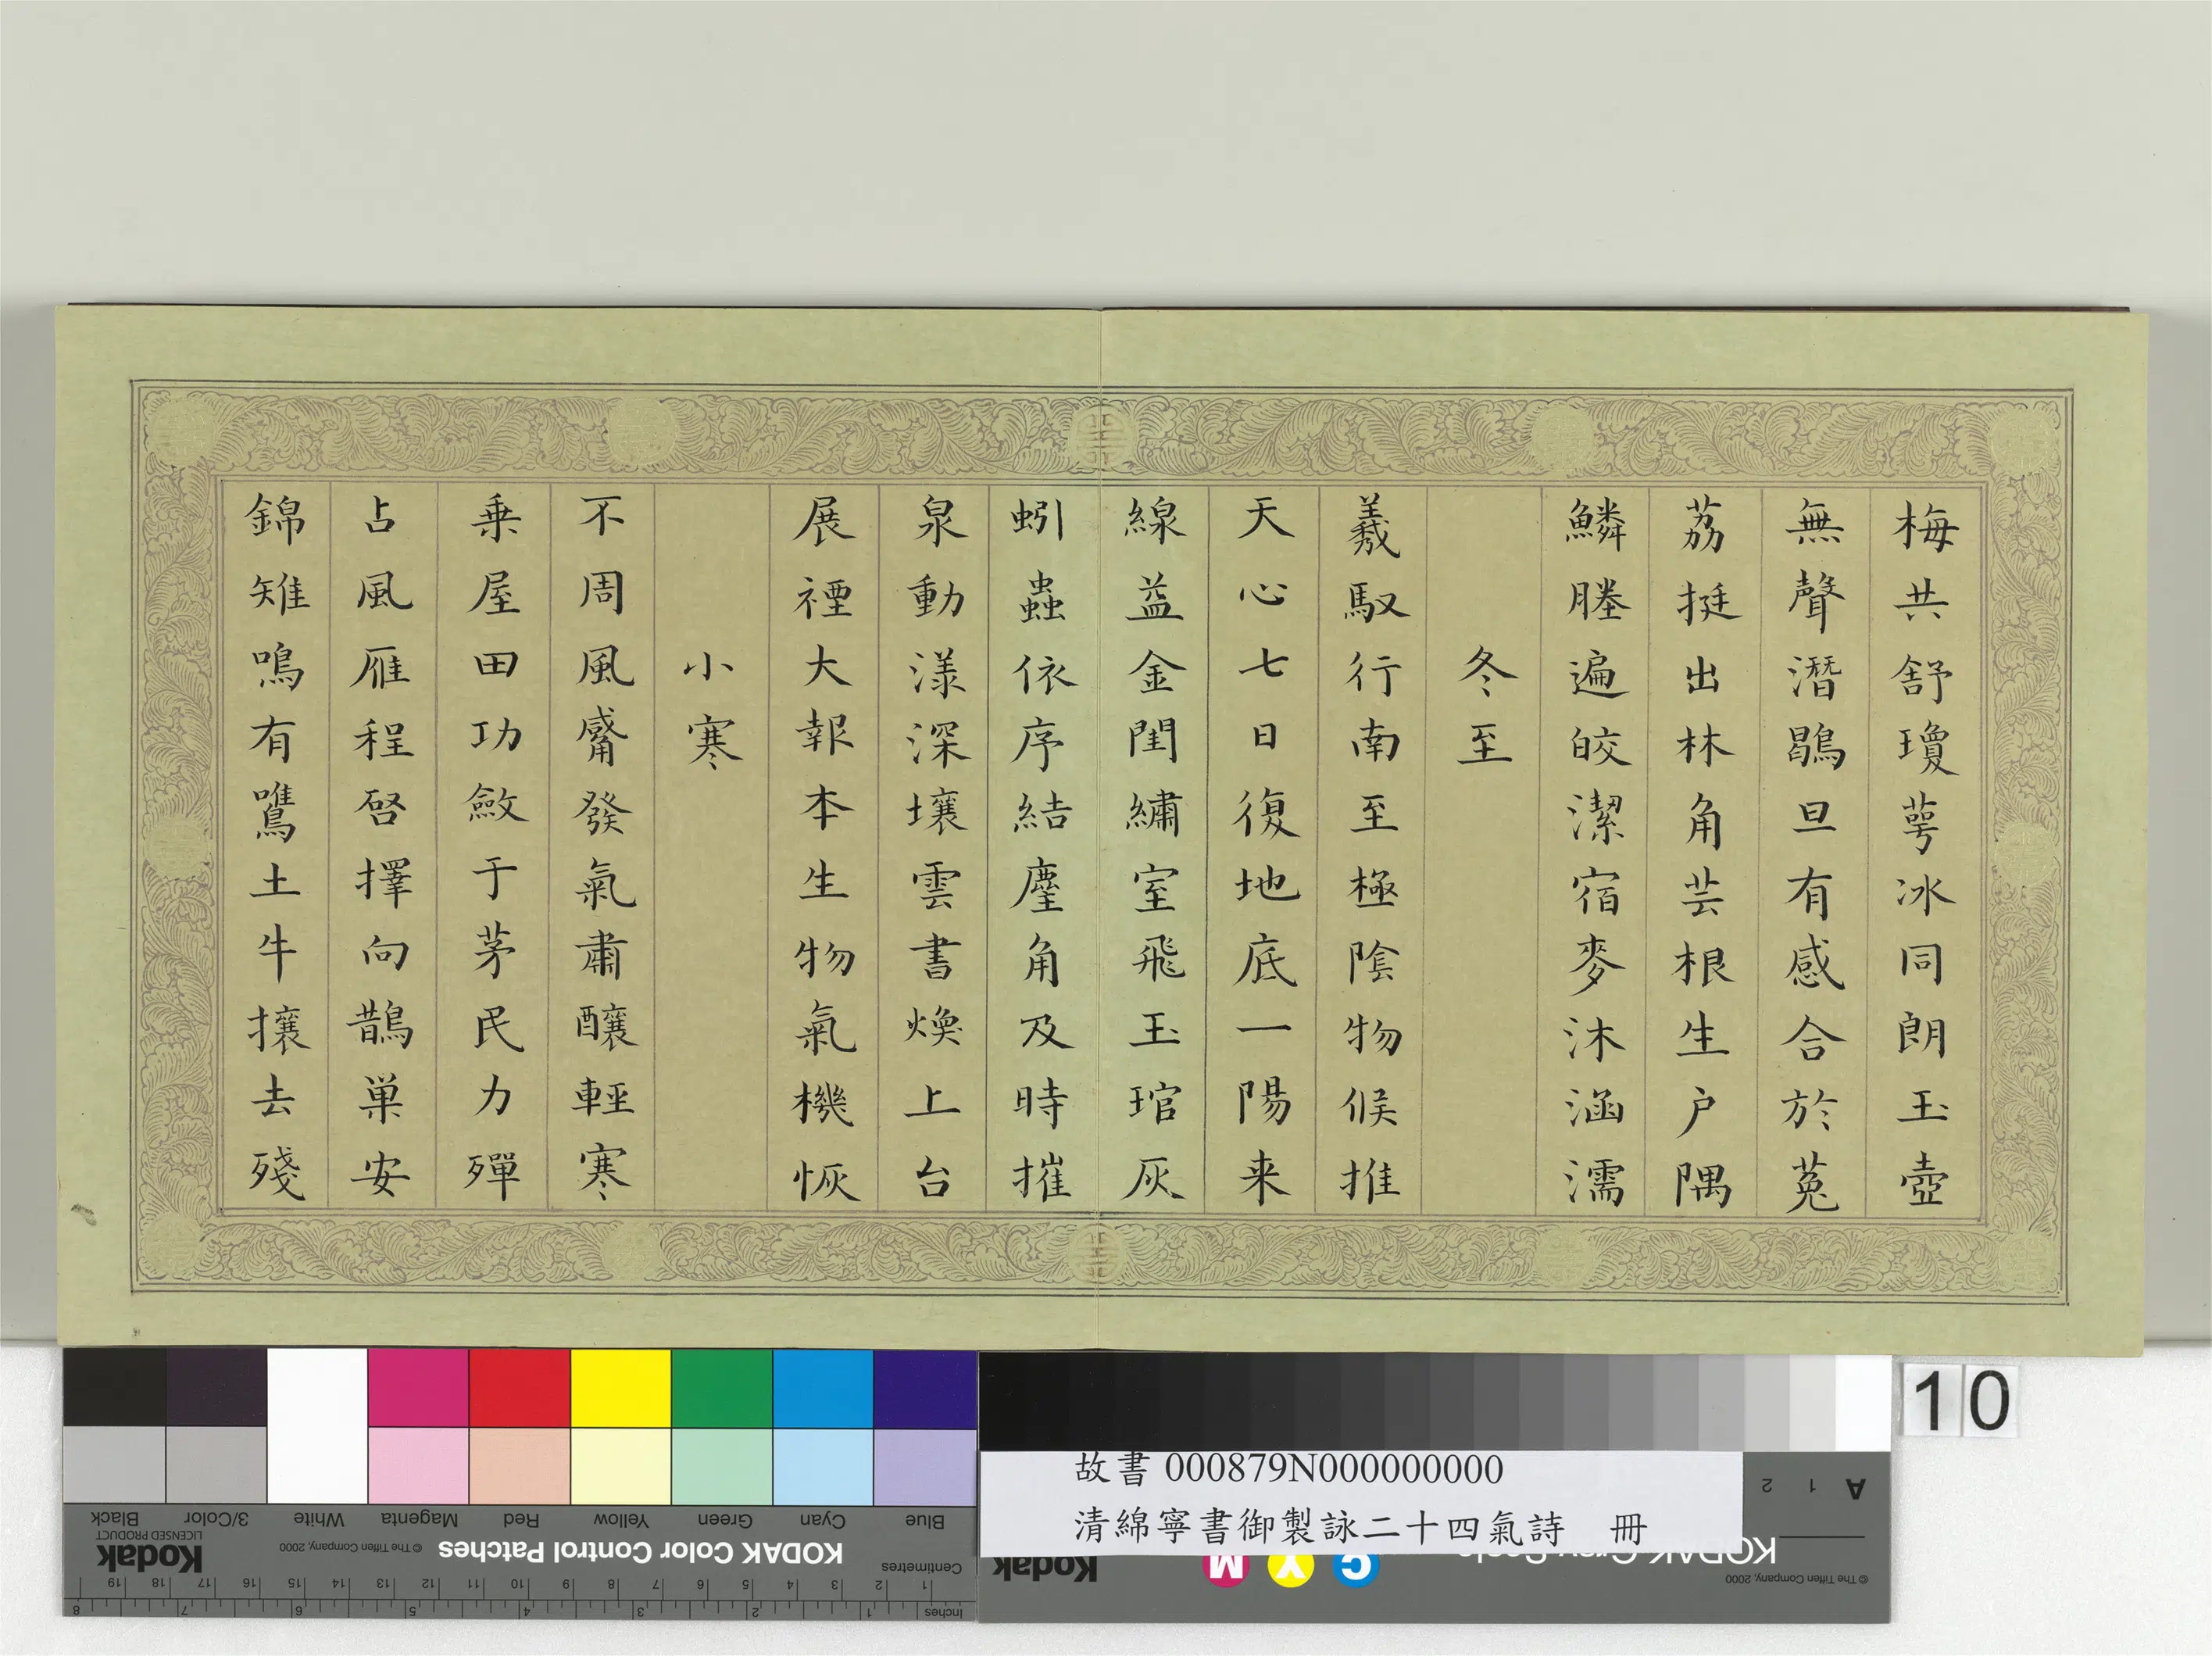 梅共舒瓊萼冰同朗玉壺
無聲潛鶡旦有感合於菟
荔挺出林角芸根生户隅
鱗塍遍皎潔宿麥沐涵濡
冬至
羲馭行南至極陰物候推
天心七日復地底一陽来
線益金閨繡室飛玉琯灰
蚓蟲依序結麈角及時摧
泉動漾深壤雲書煥上台
展禋大報本生物氣機恢
小寒
不周風觱發氣肅釀輕寒
乗屋田功斂于茅民力殫
占風雁程啓擇向鵲巢安
錦雉鳴有鷕土牛攘去殘
10
故書 000879N000000000
清綿寧書御製詠二十四氣詩 冊
Blue Cyan Green Yellow Red Magenta White 3/Color Black
KODAK Color Control Patches © The Tiffen Company, 2000 Kodak LICENSED PRODUCT
Centimetres 1 2 3 4 5 6 7 8 9 10 11 12 13 14 15 16 17 18 19
Inches 1 2 3 4 5 6 7 8
A 1 2
© The Tiffen Company, 2000
Kodak C Y M